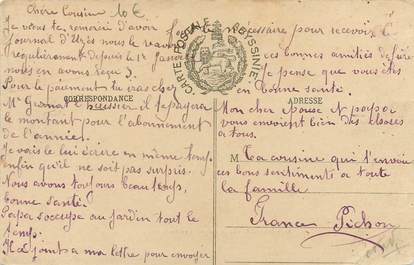 Chère Cousine 10 €
Je viens te remercier d'avoir
Journal d'Uzès nous le
régulièrement depuis le 1er Janvier
nous en avons reçu 3.
Pour le payement tu iras chez
Mr Grenat huissier il te payera
le montant pour l'abonnement
de l'année.
Je vais lui écrire en même temps
enfin qu'il ne soit pas surpris.
Nous avons toujours beau temps,
bonne santé.
Papa s'occupe au jardin tout le
temps.
joint a ma lettre pour envoyer
CARTE POSTALE
ABYSSINIE
CORRESPONDANCE
ADRESSE
nécessaire pour recevoir le
bonnes amitiés
Je pense que vous êtes
en bonne santé.
Mon cher et papa
vous envoient bien des choses
a tous.
M
Ta cousine qui t'envoie
ces bons sentiments a toute
la famille
France Pichon